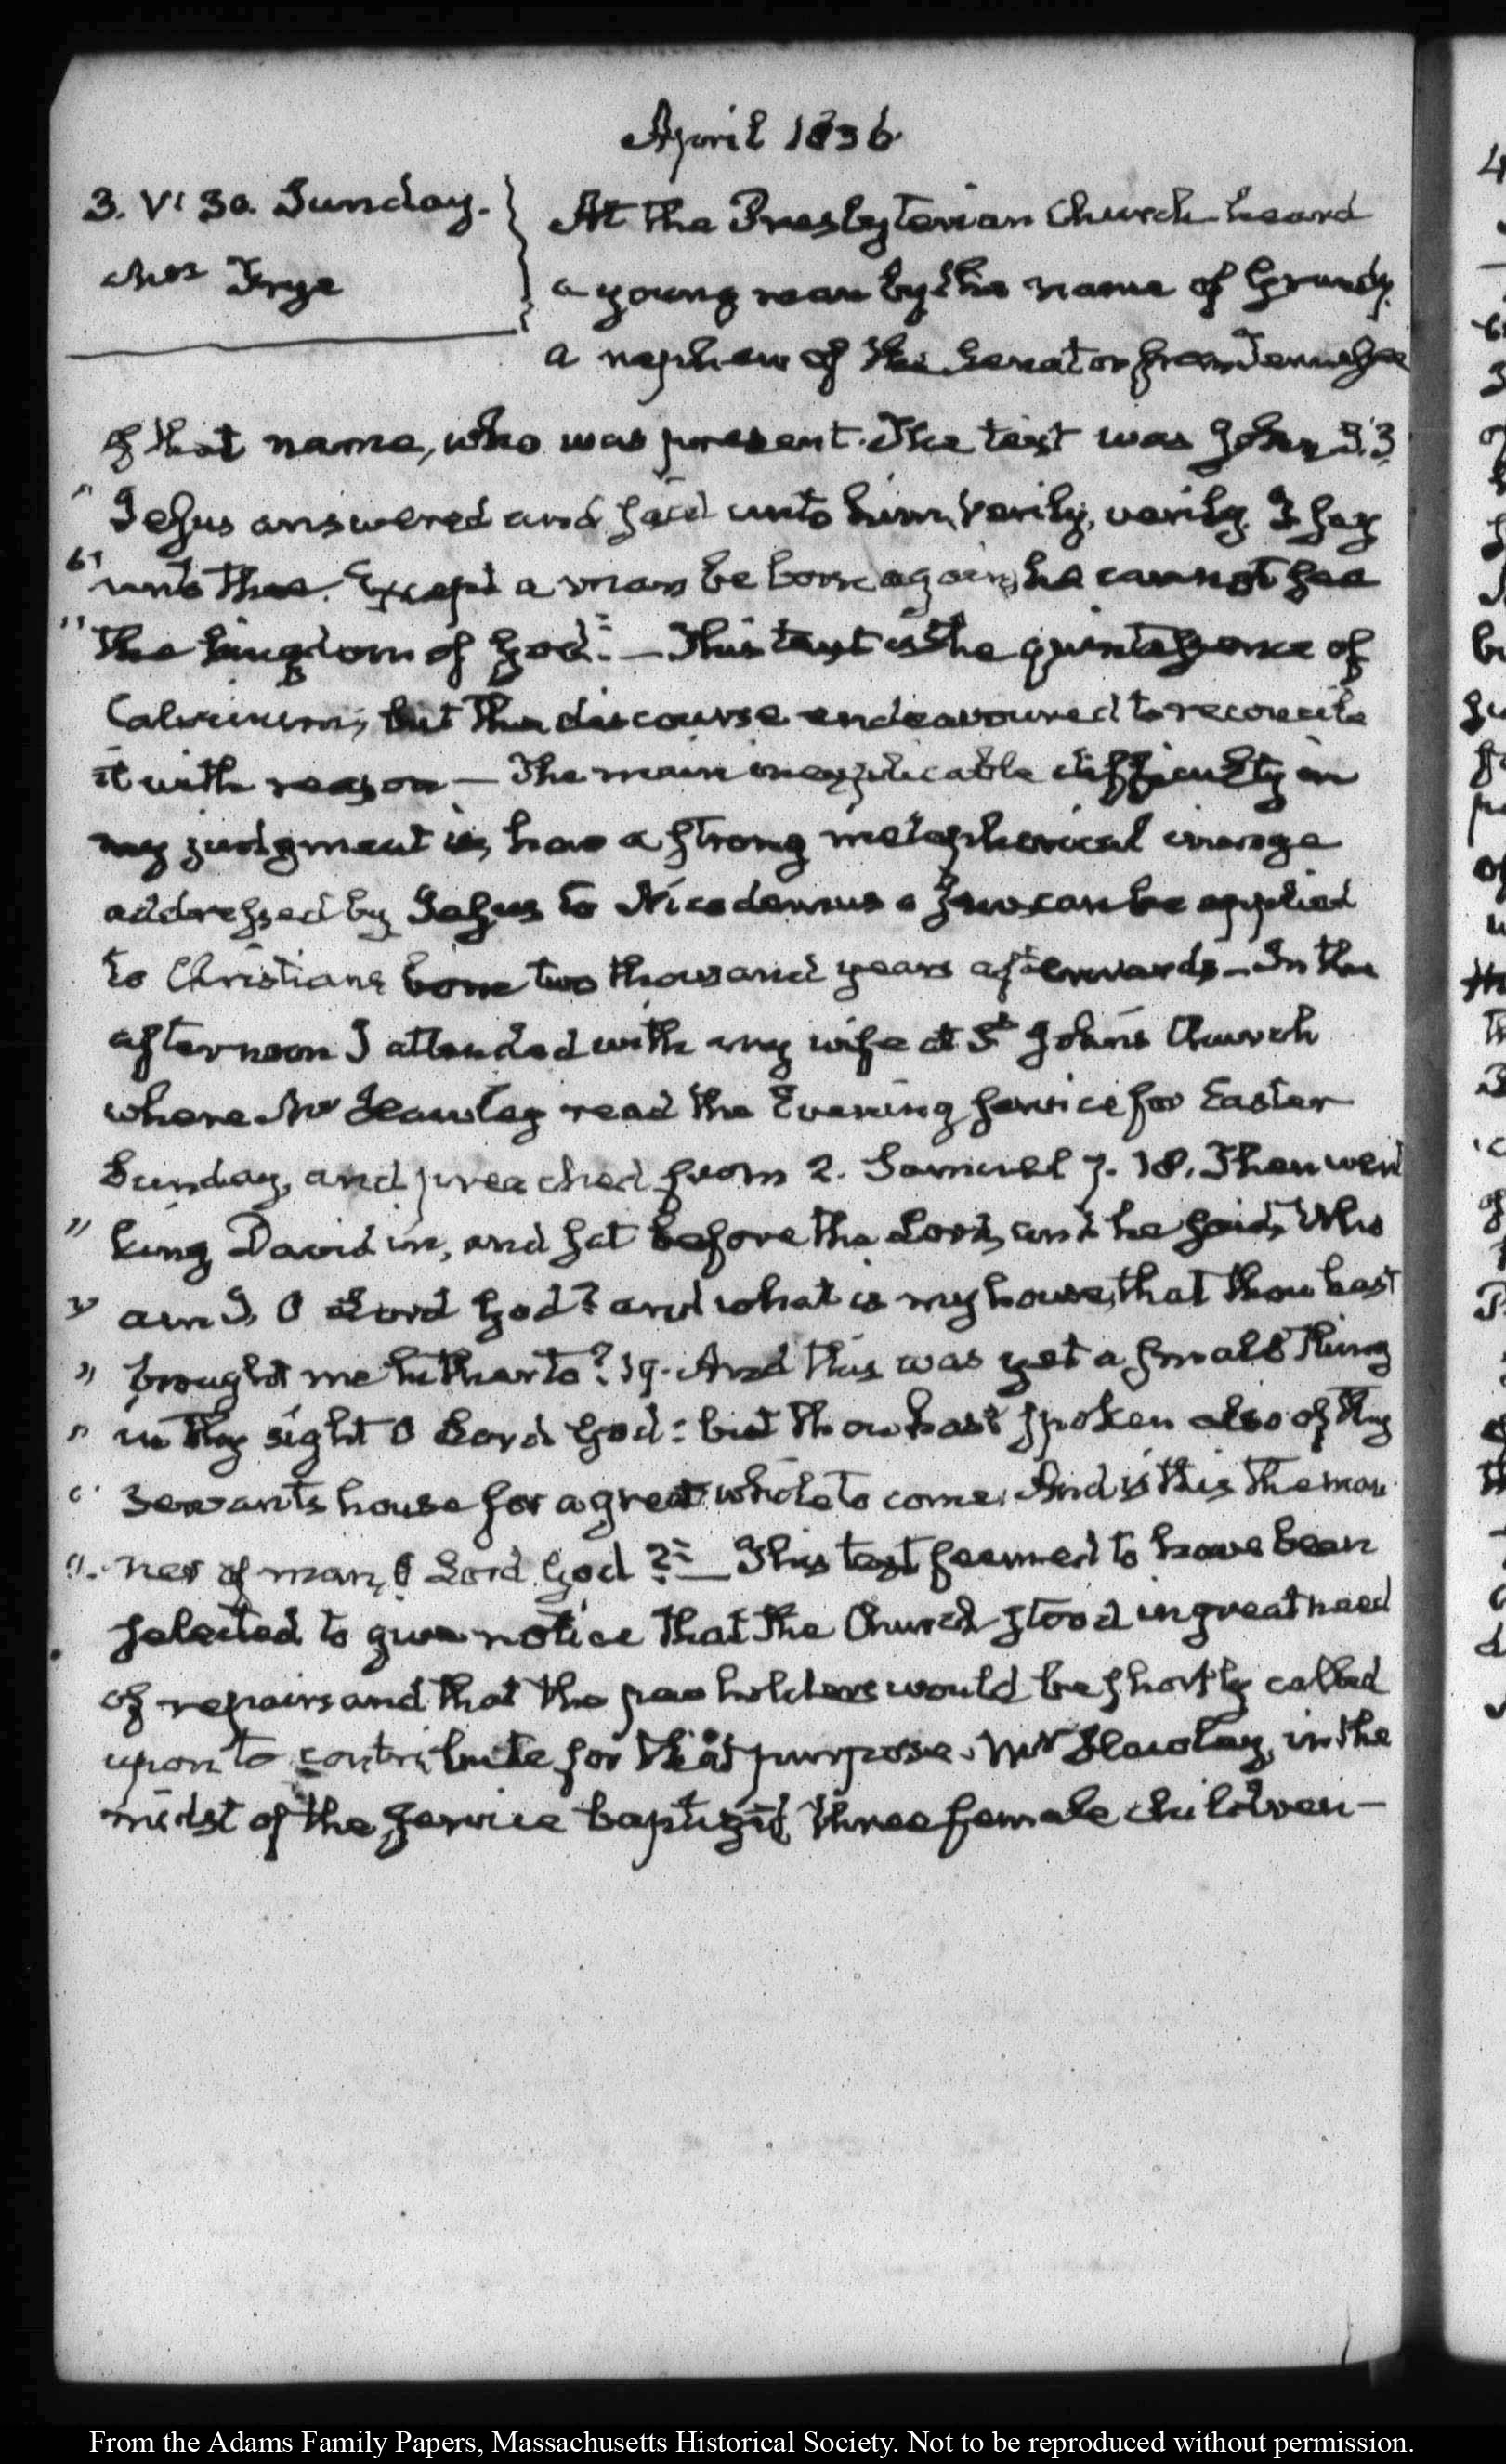 April 1836
3. VI 30. Sunday.
Mrs Frye
At the Presbyterian Church heard
a young man by the name of Grundy,
a nephew of the Senator from Tennessee
of that name, who was present. The text was John 3.3
" Jesus answered and said unto him, Verily, verily I say
" unto thee. Except a man be born again, he cannot see
" the kingdom of God." — This text is the quintessence of
Calvinism, but the discourse endeavoured to reconcile
it with reason — The main inexplicable difficulty in
my judgment is, how a strong metaphorical image
addressed by Jesus to Nicodemus a Jew can be applied
to Christians born two thousand years afterwards — In the
afternoon I attended with my wife at St John's Church
where Mr Hawley read the Evening service for Easter
Sunday, and preached from 2. Samuel 7. 18. Then went
" king David in, and sat before the Lord, and he said, Who
" am I, O Lord God? and what is my house, that thou hast
" brought me hitherto? 19. And this was yet a small thing
" in thy sight O Lord God: but thou hast spoken also of thy
" Servants house for a great while to come. And is this the man
" ner of man, O Lord God?" — This text seemed to have been
selected to give notice that the Church stood in great need
of repairs and that the pew holders would be shortly called
upon to contribute for that purpose. Mr Hawley, in the
midst of the service baptized three female children —
From the Adams Family Papers, Massachusetts Historical Society. Not to be reproduced without permission.